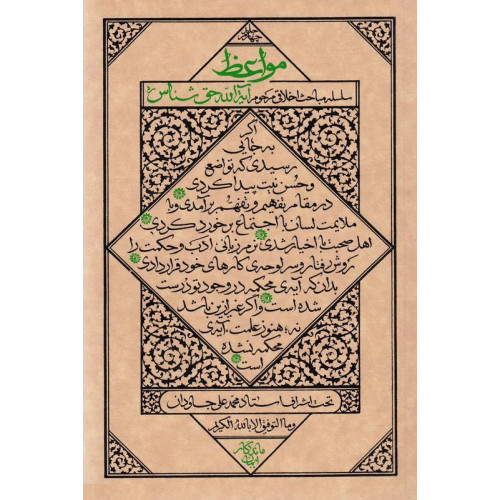 مواعظ
سلسله مباحث اخلاقی مرحوم آیة الله حق شناس
اگر
به جایی
رسیدی که تواضع
و حسن نیت پیدا کردی
در مقام تفهیم و تفهم برآمدی و با
ملایمت لسان با اجتماع برخورد کردی
اهل صحبت با اخیار شدی نرم زبانی ادب و حکمت را
روش رفتار و سرلوحه‌ی کارهای خود قرار دادی
بدان که آیه‌ی محکمه در وجود تو درست
شده است و اگر غیر از این باشد
نه؛ هنوز علمت، آیه‌ی
محکمه نشده
است
تحت اشراف استاد محمدعلی جاودان
وما التوفیق الا بالله الکریم